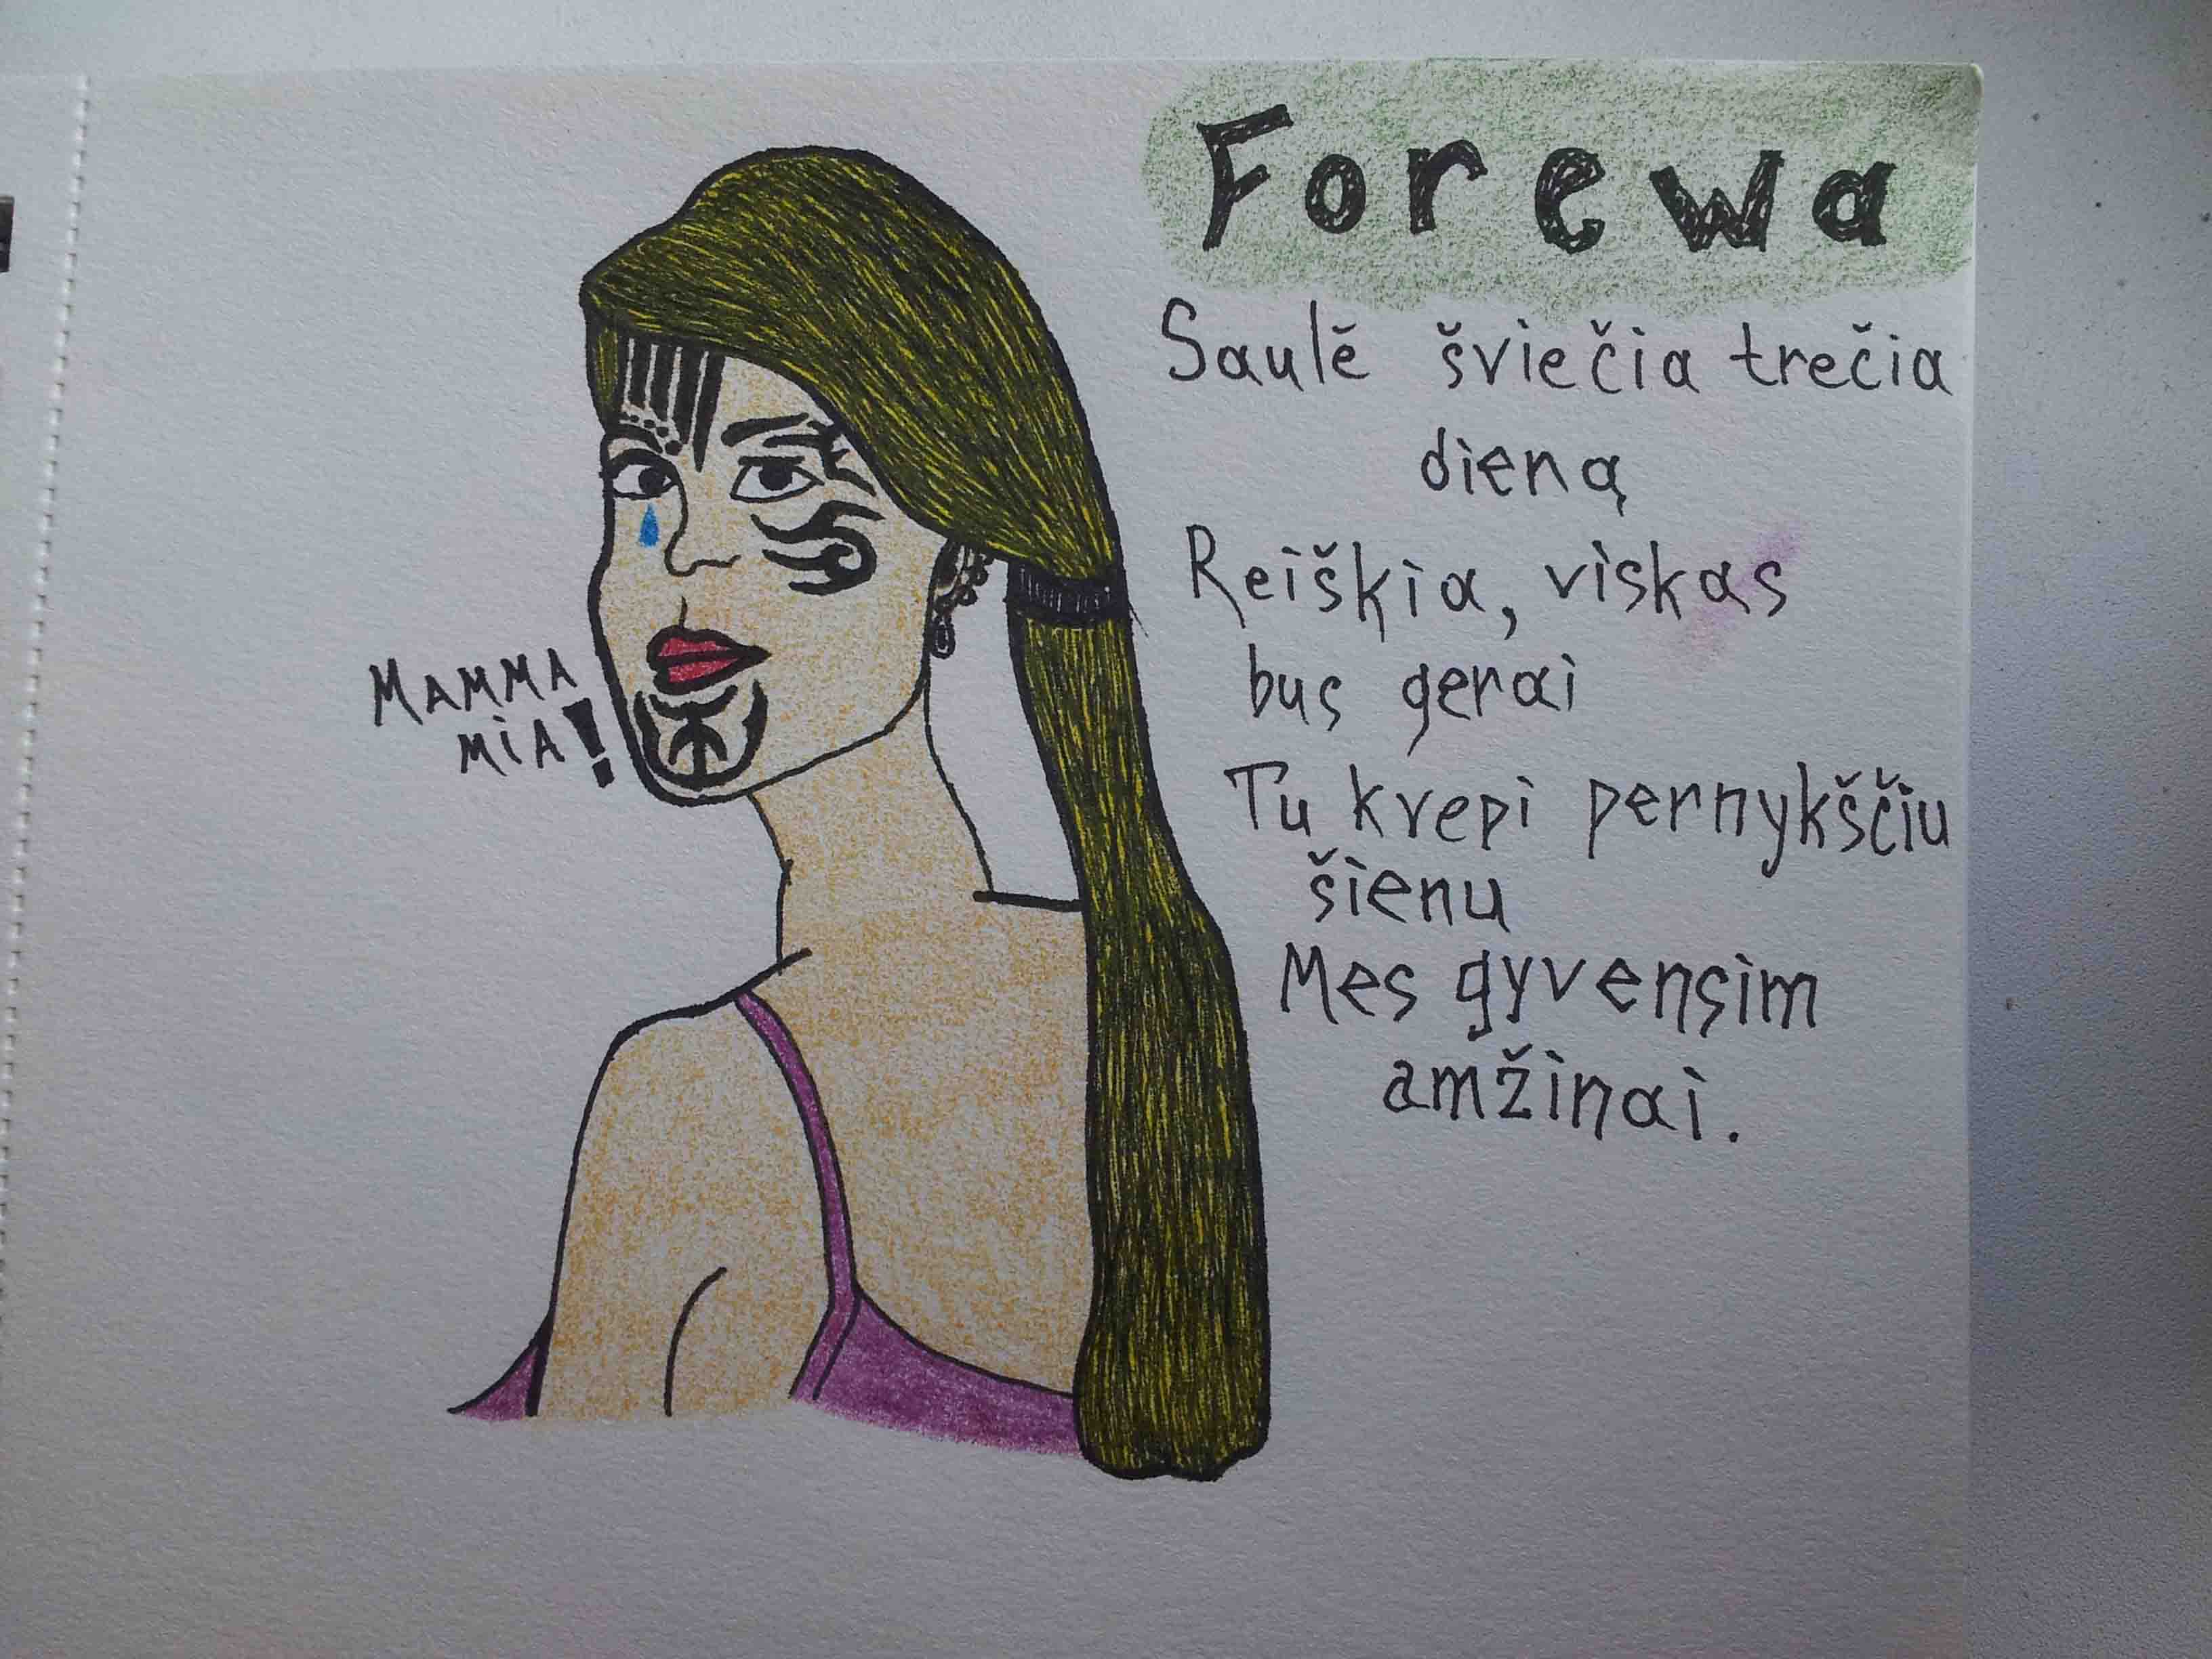 Forewa
Saulė šviečia trečia
dieną
Reiškia, viskas
bus gerai
Tu kvepi pernykščiu
šienu
Mes gyvensim
amžinai.
MAMMA
MiA!